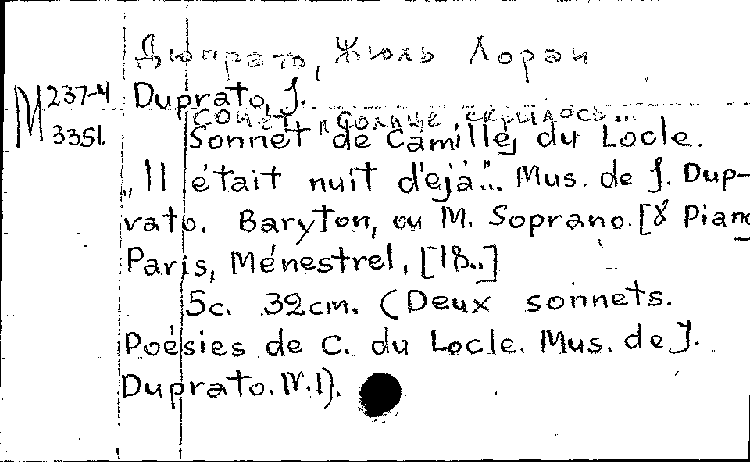 Дюпрато, Жюль Лоран
M 237-4 Duprato, J.
Сонет "Солнце скрылось...
3351. Sonnet de Camille du Locle.
"Il était nuit déjà".. Mus. de J. Dup-
rato. Baryton, ou M. Soprano. [& Piano]
Paris, Ménestrel, [18..]
5c. 32cm. (Deux sonnets.
Poésies de C. du Locle. Mus. de J.
Duprato. N.1).